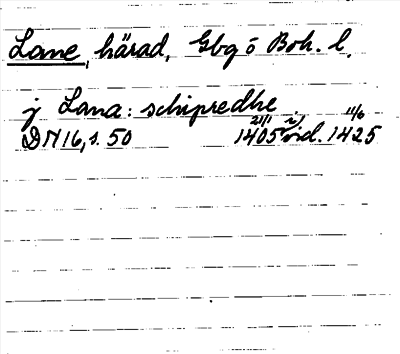 Lane, härad, Gbg o Boh. l.
j Lana: schipredhe
DN 16, s. 50 21/1 1405 i vid. 11/6 1425